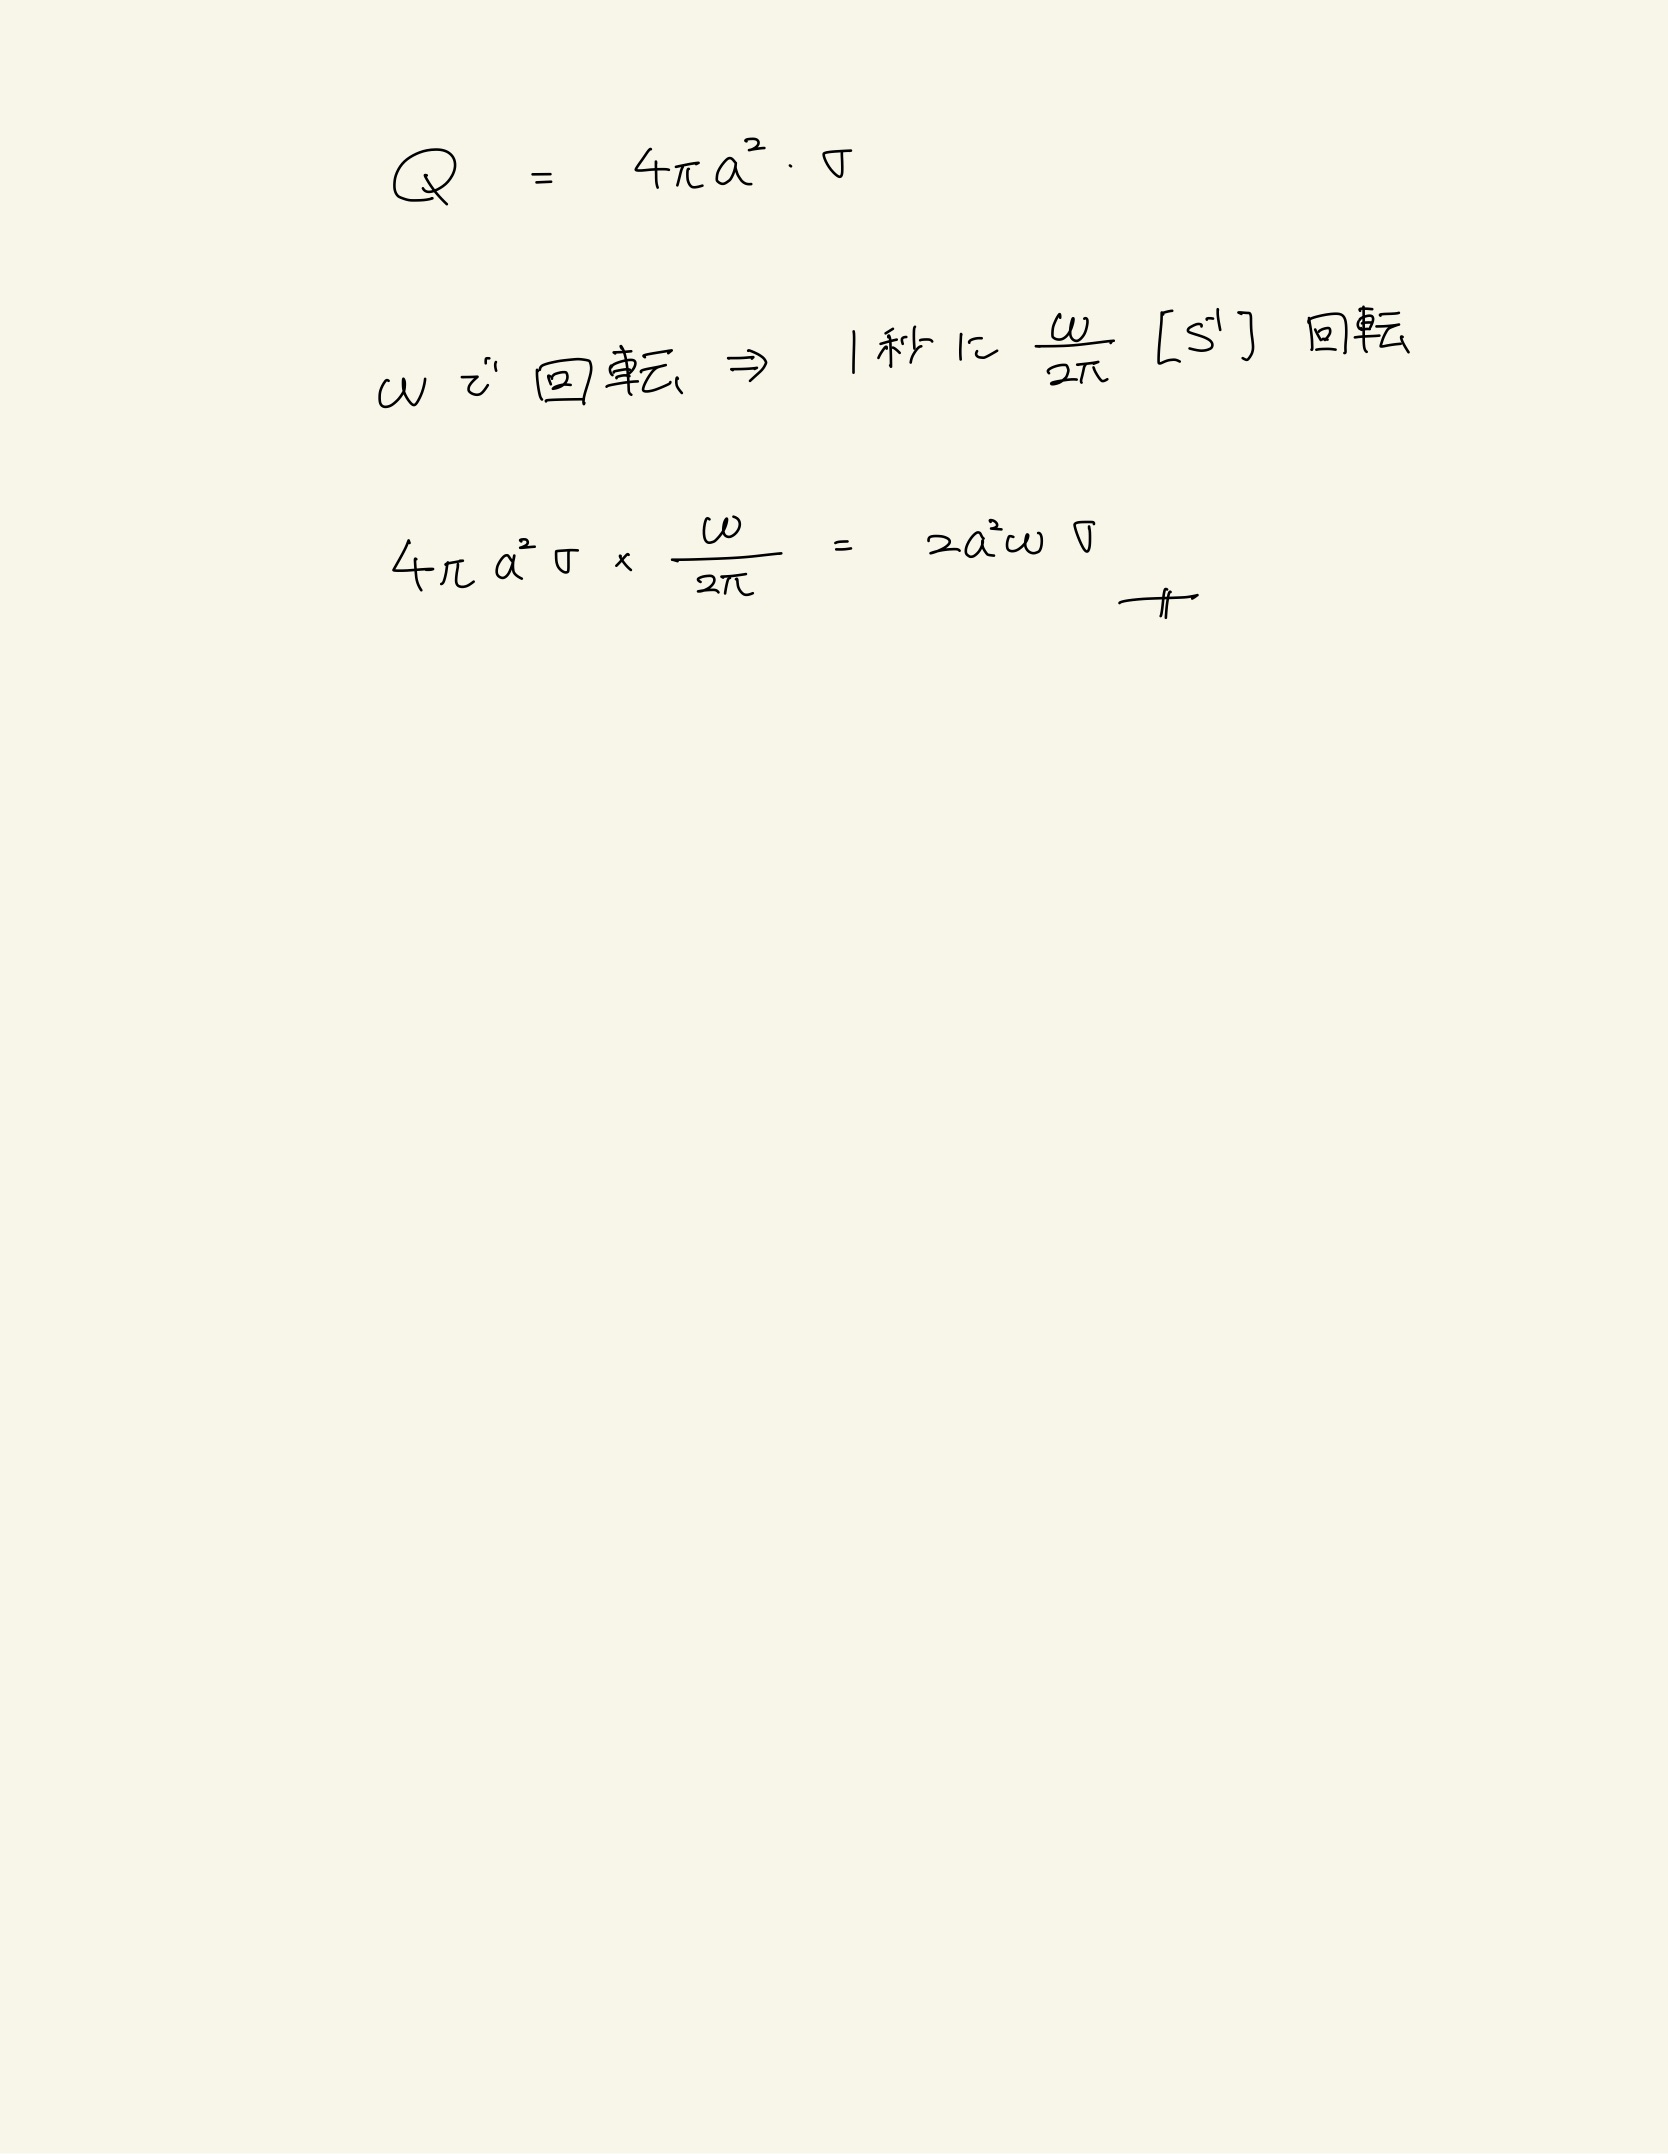 Q = 4πa² · σ
ωで回転 ⇒ 1秒に ω/2π [s⁻¹] 回転
4πa²σ × ω/2π = 2a²ωσ